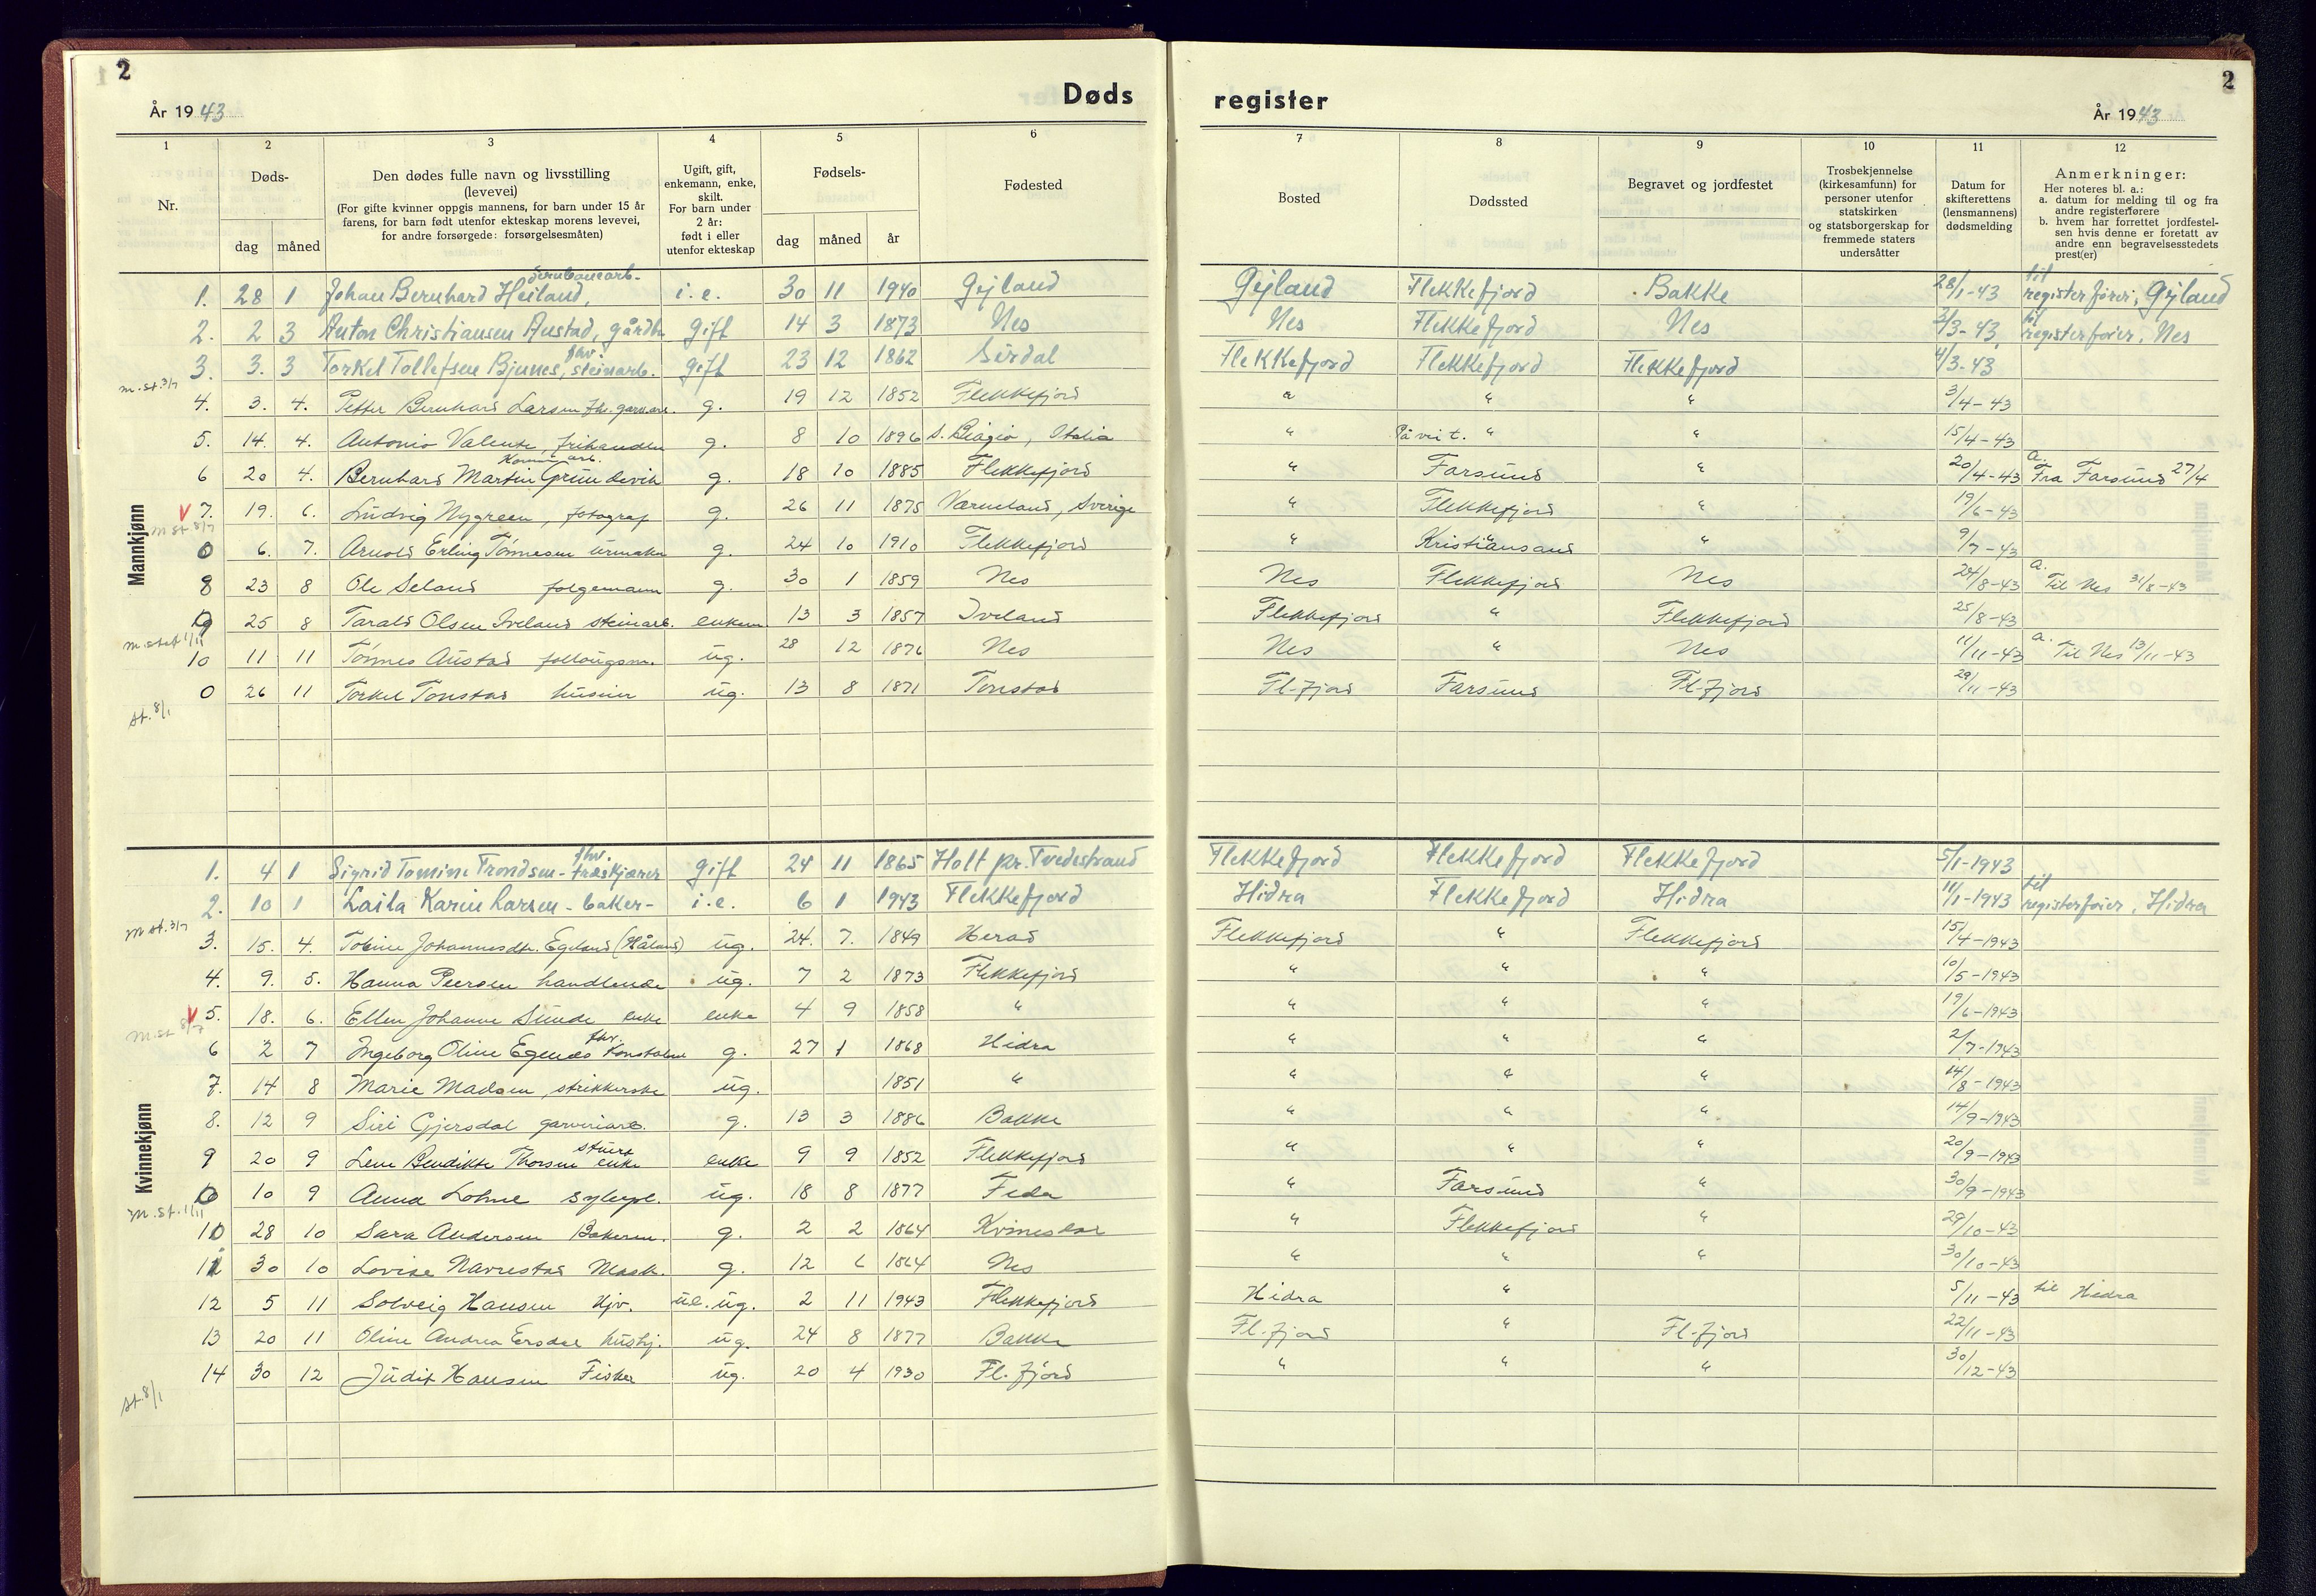 2
År 1943
Døds
register
År 1943
2
1
2
3
4
5
6
7
8
9
10
11
12
Nr.
Døds-
dag måned
Den dødes fulle navn og livsstilling
(levevei)
(For gifte kvinner oppgis mannens, for barn under 15 år
farens, for barn født utenfor ekteskap morens levevei,
for andre forsørgede: forsørgelsesmåten)
Ugift, gift,
enkemann, enke,
skilt.
For barn under
2 år:
født i eller
utenfor ekteskap
Fødsels-
dag måned år
Fødested
Bosted
Dødssted
Begravet og jordfestet
Trosbekjennelse
(kirkesamfunn) for
personer utenfor
statskirken
og statsborgerskap for
fremmede staters
undersåtter
Datum for
skifterettens
(lensmannens)
dødsmelding
Anmerkninger:
Her noteres bl. a.:
a. datum for melding til og fra
andre registerførere
b. hvem har forrettet jordfestel-
sen hvis denne er foretatt av
andre enn begravelsesstedets
prest(er)
Mannkjønn
1. 28 1 Johan Bernhard Heiland, i.e. 30 11 1940 Gyland Gyland Flekkefjord Bakke 28/1-43 til registerfører, Gyland
2. 2 3 Anton Christiansen Austad, gårdbr gift 14 3 1873 Nes Nes Flekkefjord Nes 3/3-43 til registerfører, Nes
3. 3. 3 Torkel Tollefsen Bjunes, fhv. steinarb. gift 23 12 1862 Sirdal Flekkefjord Flekkefjord Flekkefjord 4/3-43
m. st. 3/7
4. 3. 4. Petter Bernhard Larsen fh. garv.arb. g. 19 12 1852 Flekkefjord " " " 3/4-43
5. 14. 4. Antonio Valente, frihandler g. 8 10 1896 S. Biágio, Italia " På vei t. " " 15/4-43
6 20 4. Bernhard Martin Grundevik Komm. arb. g. 18 10 1885 Flekkefjord " Farsund " 20/4-43 a. Fra Farsund 27/4
V 7. 19. 6. Ludvig Nygreen, fotograf g. 26 11 1875 Värmland, Sverige " Flekkefjord " 19/6-43
m st 8/7
0 6. 7. Arnold Erling Tønnesen urmaker g. 24 10 1910 Flekkefjord " Kristiansand " 9/7-43
8 23 8 Ole Seland folgemann g. 30 1 1859 Nes Nes Flekkefjord Nes 24/8-43 a. Til Nes 31/8-43
9 25 8 Tarald Olsen Iveland steinarb. enkem. 13 3 1857 Iveland Flekkefjord " Flekkefjord 25/8-43
m. st 1/11
10 11 11 Tønnes Austad ug. 28 12 1876 Nes Nes " Nes 11/11-43 a. Til Nes 13/11-43
0 26 11 Torkel Tonstad ug. 13 8 1871 Tonstad Fl-fjord Farsund Fl-fjord 29/11-43
st. 8/1
Kvinnekjønn
1. 4 1 Sigrid Tomine Trondsen - fhv. træskjærer gift 24 11 1865 Holt pr. Tvedestrand Flekkefjord Flekkefjord Flekkefjord 5/1-1943
2. 10 1 Laila Karin Larsen - baker- i.e. 6 1 1943 Flekkefjord Hidra Flekkefjord Hidra 11/1-1943 til registerfører, Hidra
m st. 3/7
3. 15. 4. Tobine Johannesdtr. Egeland (Håland) ug. 24. 7. 1849 Herad Flekkefjord " Flekkefjord 15/4-1943
4. 9. 5. Hanna Peersen handlende ug. 7 2 1873 Flekkefjord " " " 10/5-1943
V 5. 18. 6. Ellen Johanne Sunde enke enke 4 9 1858 " " " " 19/6-1943
m. st 8/7
6 2 7 Ingeborg Oline Egenes fhv. Konstabel g. 27 1 1868 Hidra " " " 2/7-1943
7. 14 8 Marie Madsen, strikkerske ug. 1851 " " " " 14/8-1943
8. 12 9 Siri Gjersdal garveriarb. g. 13 3 1886 Bakke " " " 14/9-1943
9 20 9 Lene Bendikte Thorsen stuert enke enke 9 9 1852 Flekkefjord " " " 20/9-1943
0 10 9 Anna Lohne ug. 18 8 1877 Feda " Farsund " 30/9-1943
m. st. 1/11
10 28 10 Sara Andersen Bakerm. g. 2 2 1864 Kvinesdal " Flekkefjord " 29/10-43
11 30 10 Lovise Navrestad Mask. g. 12 6 1864 Nes " " " 30/10-43
12 5 11 Solveig Hansen Hjv. u.e. ug. 2 11 1943 Flekkefjord Hidra " 5/11-43 til Hidra
13 20 11 Oline Andrea Ersdal hushj. ug. 24 8 1877 Bakke Fl-fjord " Fl-fjord 22/11-43
14 30 12 Judit Hansen Fisker ug. 20 4 1930 Fl. fjord " " " 30/12-43
st. 8/1